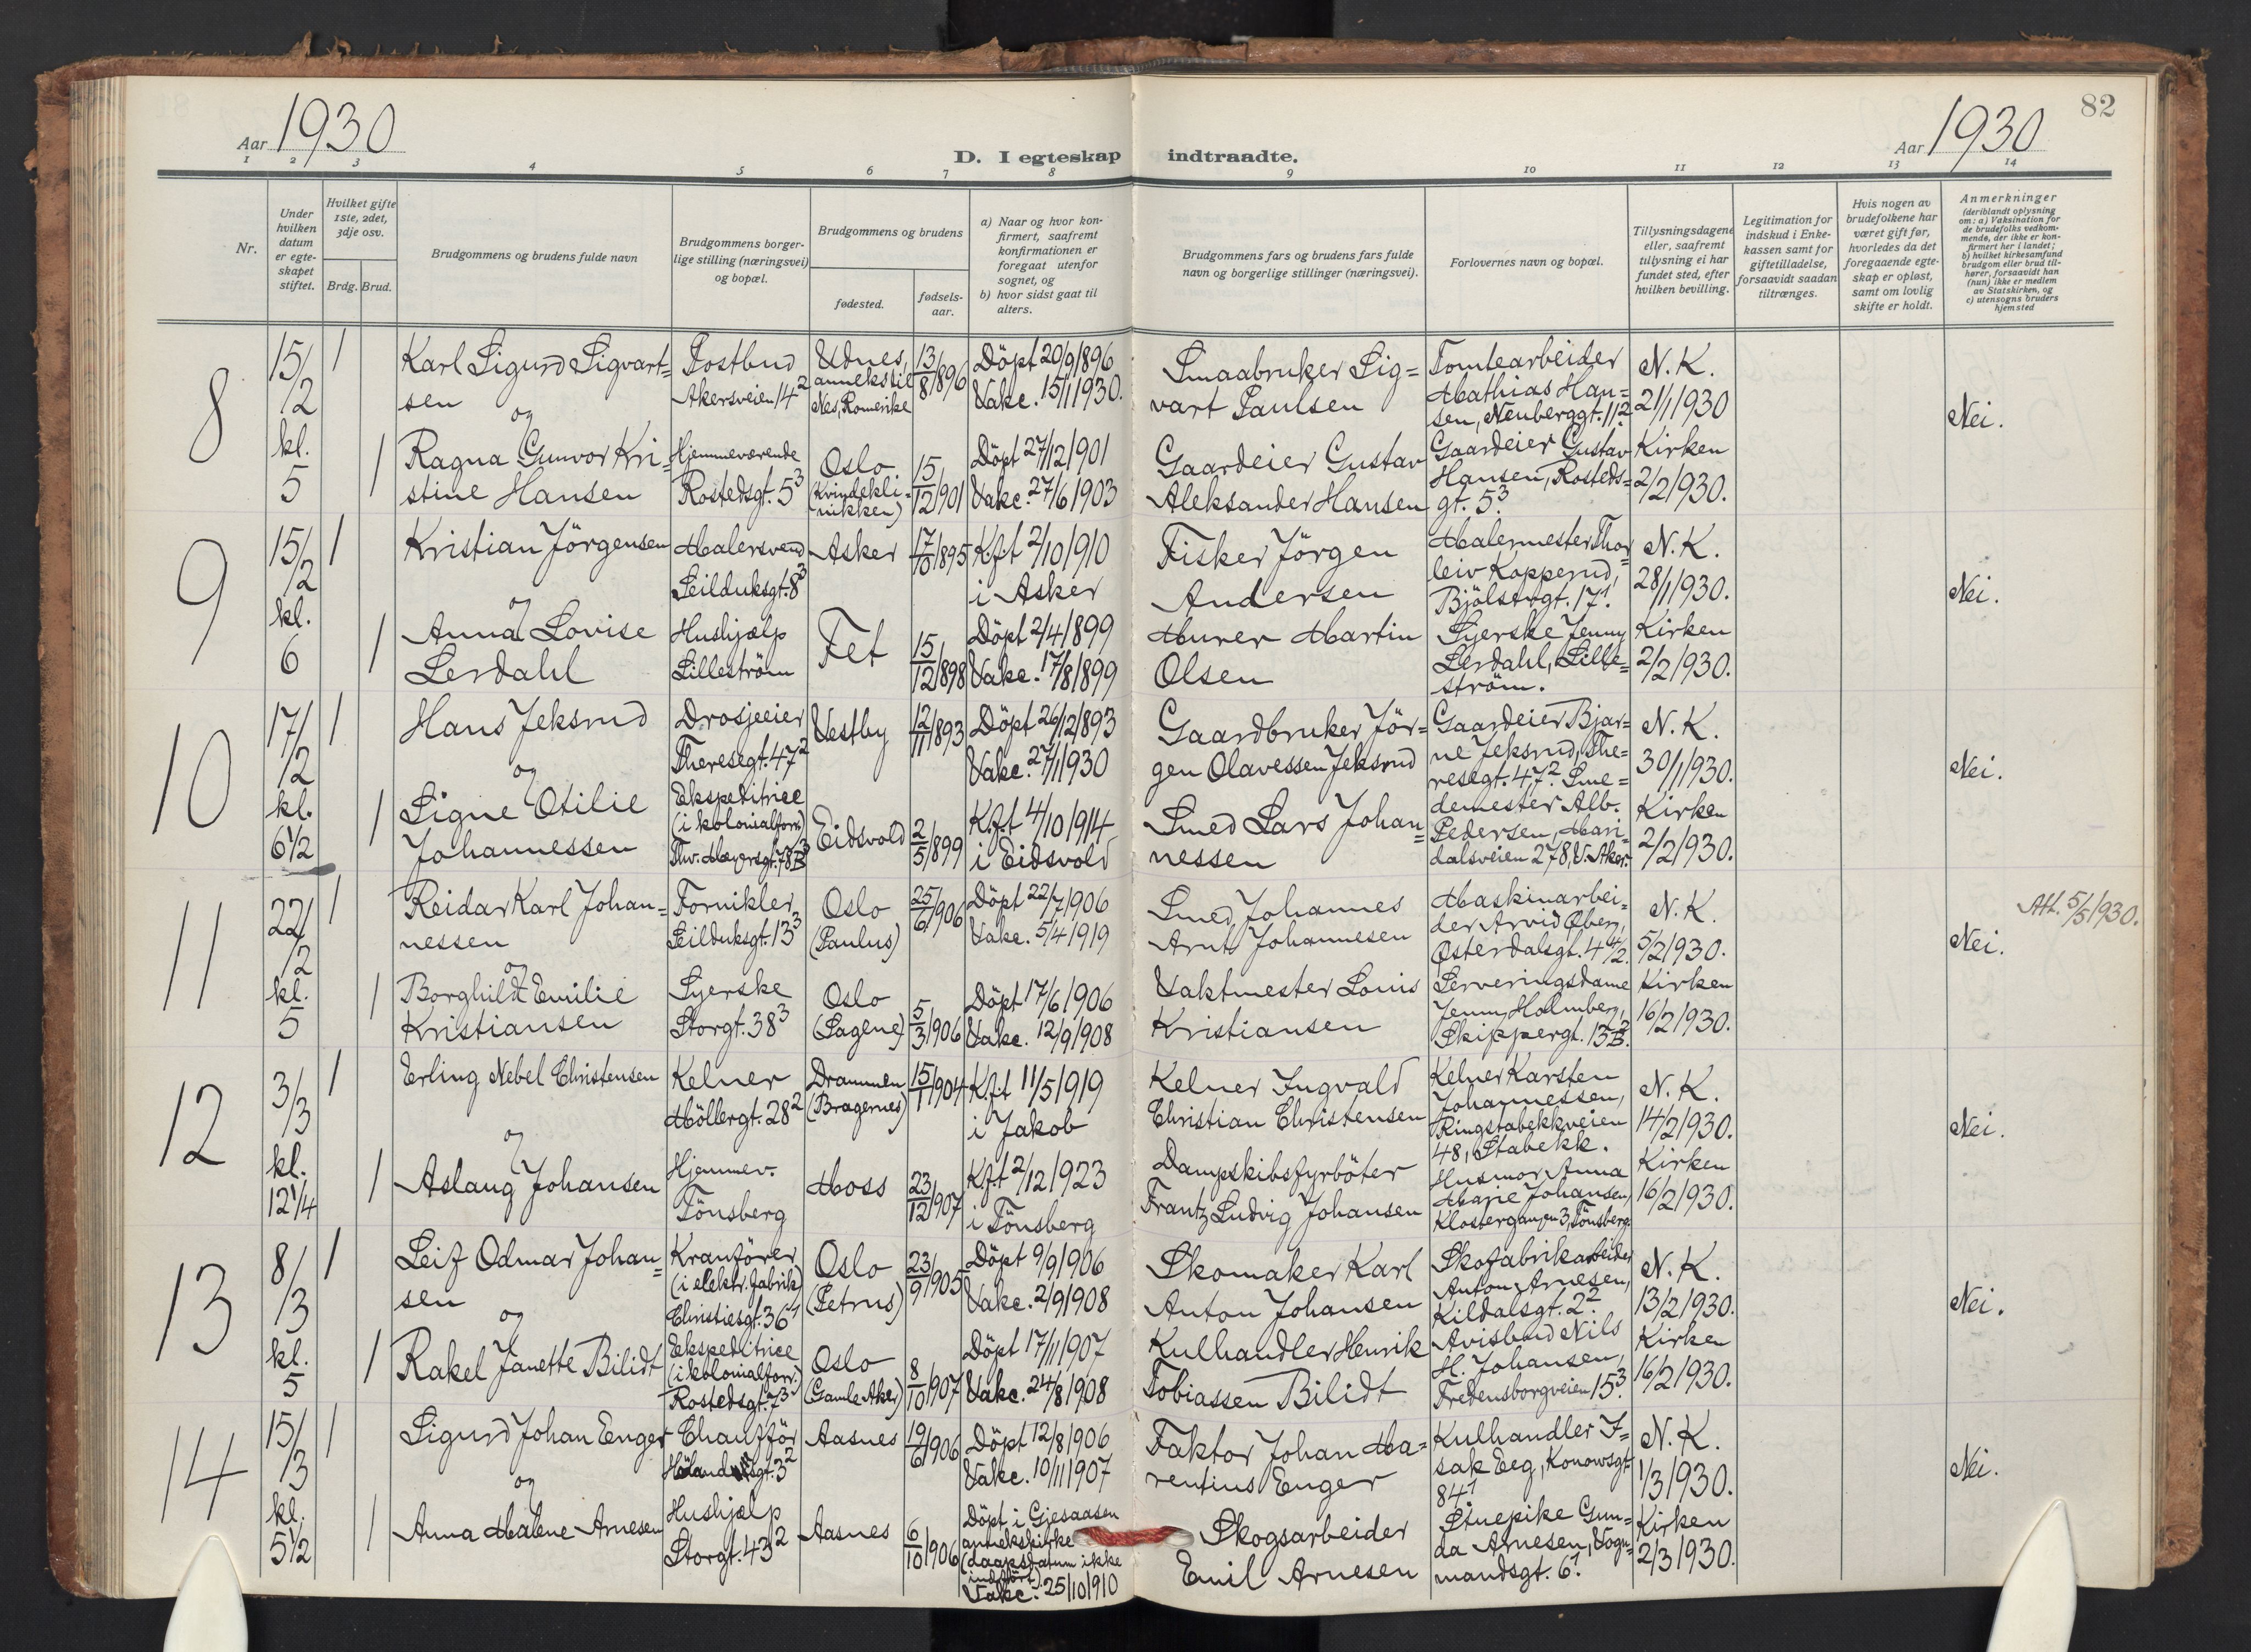 82
Aar 1930
Aar 1930
D. I egteskap indtraadte.
1 2 3 4 5 6 7 8 9 10 11 12 13 14
Nr.
Under hvilken datum er egteskapet stiftet.
Hvilket gifte 1ste, 2det, 3dje osv.
Brdg. Brud.
Brudgommens og brudens fulde navn
Brudgommens borgerlige stilling (næringsvei) og bopæl.
Brudgommens og brudens
fødested.
fødselsaar.
a) Naar og hvor konfirmert, saafremt konfirmationen er foregaat utenfor sognet, og
b) hvor sidst gaat til alters.
Brudgommens fars og brudens fars fulde navn og borgerlige stillinger (næringsvei).
Forlovernes navn og bopæl.
Tillysningsdagene eller, saafremt tillysning ei har fundet sted, efter hvilken bevilling.
Legitimation for indskud i Enkekassen samt for giftetilladelse, forsaavidt saadan tiltrænges.
Hvis nogen av brudefolkene har været gift før, hvorledes da det foregaaende egteskap er opløst, samt om lovlig skifte er holdt.
Anmerkninger (deriblandt oplysning om: a) Vaksination for de brudefolks vedkommende, der ikke er konfirmert her i landet; b) hvilket kirkesamfund brudgom eller brud tilhører, forsaavidt han (hun) ikke er medlem av Statskirken, og c) utensogns bruders hjemsted
8
15/2 kl. 5
1
Karl Sigurd Sigvart=
sen
og
Postbud
Akersveien 14²
Udnes,
anneks til
Nes, Romerike
13/8 1896
Döpt 20/9 1896
Vakc. 15/1 1930.
Smaabruker Sig=
vart Paulsen
Tomtearbeider
Mathias Han=
sen, Neuberggt. 11².
N.K.
21/1 1930
Nei.
1
Ragna Gunvor Kri=
stine Hansen
Hjemmeværende
Rostedsgt. 5³
Oslo
(Kvindekli=
nikken)
15/12 1901
Döpt 27/12 1901
Vakc. 27/6 1903
Gaardeier Gustav
Aleksander Hansen
Gaardeier Gustav
Hansen, Rosteds=
gt. 5³.
Kirken
2/2 1930.
9
15/2 kl. 6
1
Kristian Jörgensen
og
Malersvend
Seilduksgt. 8³
Asker
17/10 1895
K.f.t 2/10 1910
i Asker
Fisker Jörgen
Andersen
Malermester Thor=
leiv Kopperud,
Bjölsengt. 17¹.
N.K.
28/1 1930.
Nei.
1
Anna Lovise
Lerdahl
Hushjælp
Lilleström
Fet
15/12 1898
Döpt 2/4 1899
Vakc. 17/8 1899
Murer Martin
Olsen
Syerske Jenny
Lerdahl, Lille=
ström.
Kirken
2/2 1930.
10
17/2 kl. 6½
1
Hans Jeksrud
og
Drosjeeier
Theresegt. 47²
Vestby
12/11 1893
Döpt 26/12 1893
Vakc. 27/1 1930
Gaardbruker Jör=
gen Olavessen Jeksrud
Gaardeier Bjar=
ne Jeksrud, The=
resegt. 47². Sme=
N.K.
30/1 1930.
Nei.
1
Signe Otilie
Johannessen
Ekspeditrice
(i kolonialforr.)
Thv. Meyersgt. 78B³
Eidsvold
2/5 1899
K.f.t 4/10 1914
i Eidsvold
Smed Lars Johan=
nessen
demester Alb.
Pedersen, Mari=
dalsveien 278, V. Aker.
Kirken
2/2 1930.
11
22/2 kl. 5
1
Reidar Karl Johan=
nessen
og
Fornikler
Seilduksgt. 13³
Oslo
(Paulus)
25/6 1906
Döpt 22/7 1906
Vakc. 5/4 1919
Smed Johannes
Arnt Johannesen
Maskinarbei=
der Arvid Öberg,
Österdalsgt. 4 4/2.
N.K.
5/2 1930.
Nei.
Att. 5/5 1930.
1
Borghild Emilie
Kristiansen
Syerske
Storgt. 38³
Oslo
(Sagene)
5/3 1906
Döpt 17/6 1906
Vakc. 12/9 1908
Vaktmester Louis
Kristiansen
Serveringsdame
Jenny Holmberg,
Skippergt. 13B³.
Kirken
16/2 1930.
12
3/3 kl. 12¼
1
Erling Nebel Christensen
og
Kelner
Möllergt. 28²
Drammen
(Bragernes)
15/1 1904
K.f.t 11/5 1919
i Jakob
Kelner Ingvald
Christian Christensen
Kelner Karsten
Johannessen,
Ringstabekkveien
48, Stabekk.
N.K.
14/2 1930.
Nei.
1
Aslaug Johansen
Hjemmev.
Tönsberg
Moss
23/12 1907
K.f.t 2/12 1923
i Tönsberg
Dampskibsfyrböter
Frantz Ludvig Johansen
Husmor Anna
Marie Johansen,
Klostergangen 3, Tönsberg.
Kirken
16/2 1930.
13
8/3 kl. 5
1
Leif Odmar Johan=
sen
og
Kranförer
(i elektr. fabrik)
Christiesgt. 36¹
Oslo
(Petrus)
23/9 1905
Döpt 9/9 1906
Vakc. 2/9 1908
Skomaker Karl
Anton Johansen
Skofabrikarbeider
Anton Arnesen,
Kildalsgt. 2².
N.K.
13/2 1930.
Nei.
1
Rakel Janette Bilidt
Ekspeditrice
(i kolonialforr.)
Rostedsgt. 7³
Oslo
(Gamle Aker)
8/10 1907
Döpt 17/11 1907
Vakc. 24/8 1908
Kulhandler Henrik
Tobiassen Bilidt
Avisbud Nils
H. Johansen,
Fredensborgveien 15³.
Kirken
16/2 1930.
14
15/3 kl. 5½
1
Sigurd Johan Enger
og
Chauffør
Aasnes
19/6 1906
Döpt 12/8 1906
Vakc. 10/11 1907
Faktor Johan Ma=
rentius Enger
Kulhandler I=
sak Eeg, Konowsgt.
84¹.
N.K.
1/3 1930.
Nei.
1
Anna Malene Arnesen
Hushjælp
Storgt. 43²
Aasnes
6/10 1906
Döpt i Gjesaasen
annekskirke
(daapsdatum ikke
indfört).
Vakc. 25/10 1910
Skogsarbeider
Emil Arnesen
Stuepike Gun=
da Arnesen, Vogn=
mandsgt. 6¹.
Kirken
2/3 1930.